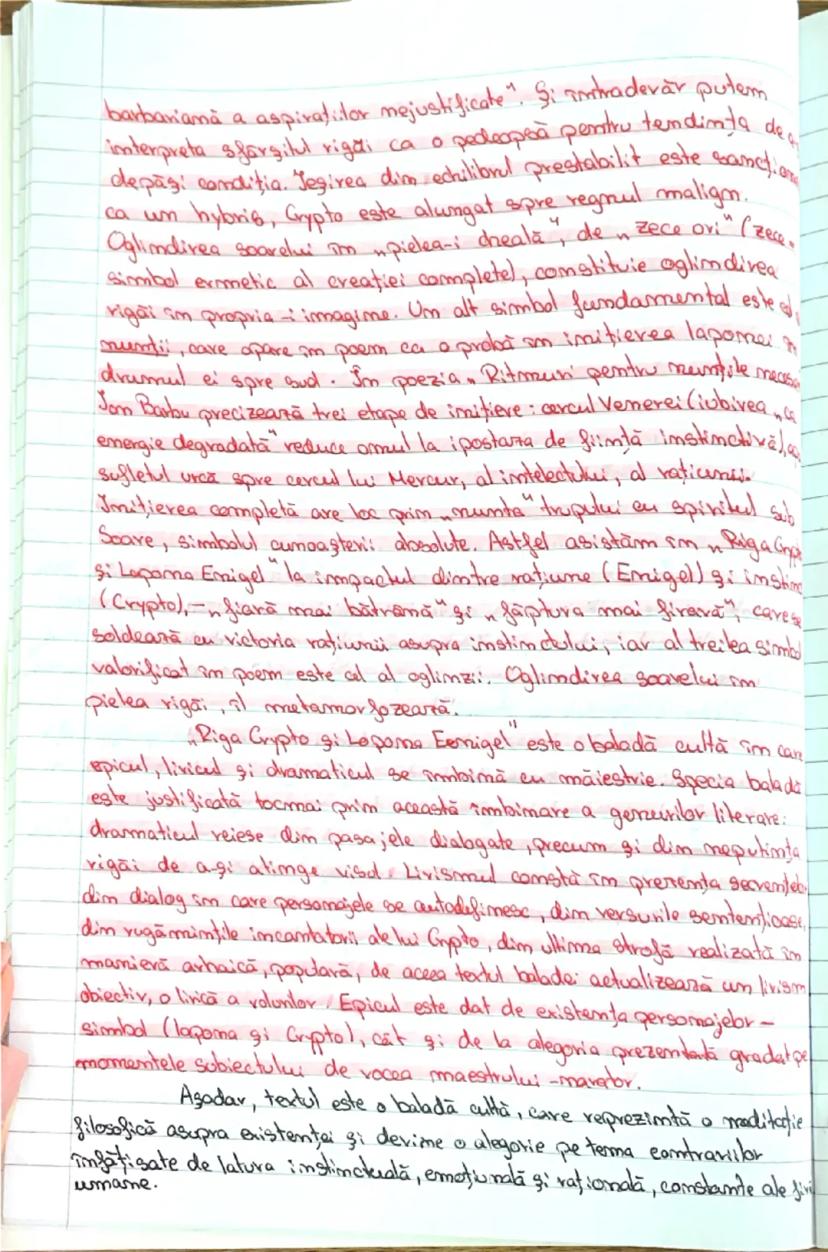 barbariană a aspirațiilor nejustificate". Și într-adevăr putem
interpreta sfârșitul rigăi ca o pedeapsă pentru tendința de a
depăși condiția. Ieșirea din echilibrul prestabilit este
ca un hybris, Crypto este alungat spre regnul malign.
Oglindirea soarelui în „pielea-i cheală", de „zece ori" (zece
simbol ermetic al creației complete), constituie oglindirea
rigăi în propria-i imagine. Un alt simbol fundamental este
nunții, care apare în poem ca o probă în inițierea laponei în
drumul ei spre sud. În poezia „Ritmuri pentru nunțile
Ion Barbu precizează trei etape de inițiere: cercul Venerei (iubirea „ca
energie degradată" reduce omul la ipostaza de ființă instinctivă),
sufletul urcă spre cercul lui Mercur, al intelectului, al rațiunii.
Inițierea completă are loc prin „nunta" trupului cu spiritul sub
Soare, simbolul cunoașterii absolute. Astfel asistăm în „Riga
și Lapona Enigel" la impactul dintre rațiune (Enigel) și
(Crypto), - „fiară mai bătrână" și „făptura mai firavă", care se
soldează cu victoria rațiunii asupra instinctului, iar al treilea simbol
valorificat în poem este cel al oglinzii. Oglindirea soarelui în
pielea rigăi, îl metamorfozează.
„Riga Crypto și Lapona Eenigel" este o baladă cultă în care
epicul, liricul și dramaticul se îmbină cu măiestrie. Specia baladă
este justificată tocmai prin această îmbinare a genurilor literare:
dramaticul reiese din pasajele dialogate, precum și din neputința
rigăi de a-și atinge visul. Lirismul constă în prezența secvențelor
din dialog în care personajele se autodefinesc, din versurile sentențioase,
din rugămințile incantatorii ale lui Crypto, din ultima strofă realizată în
manieră arhaică, populară, de aceea textul baladei actualizează un lirism
obiectiv, o lirică a rolurilor. Epicul este dat de existența personajelor-
simbol (lapona și Crypto), cât și de la alegoria prezentată gradat pe
momentele subiectului de vocea maestrului-narator.
Așadar, textul este o baladă cultă, care reprezintă o meditație
filosofică asupra existenței și devine o alegorie pe tema contrariilor
înfățișate de latura instinctuală, emoțională și rațională, constante ale
umane.